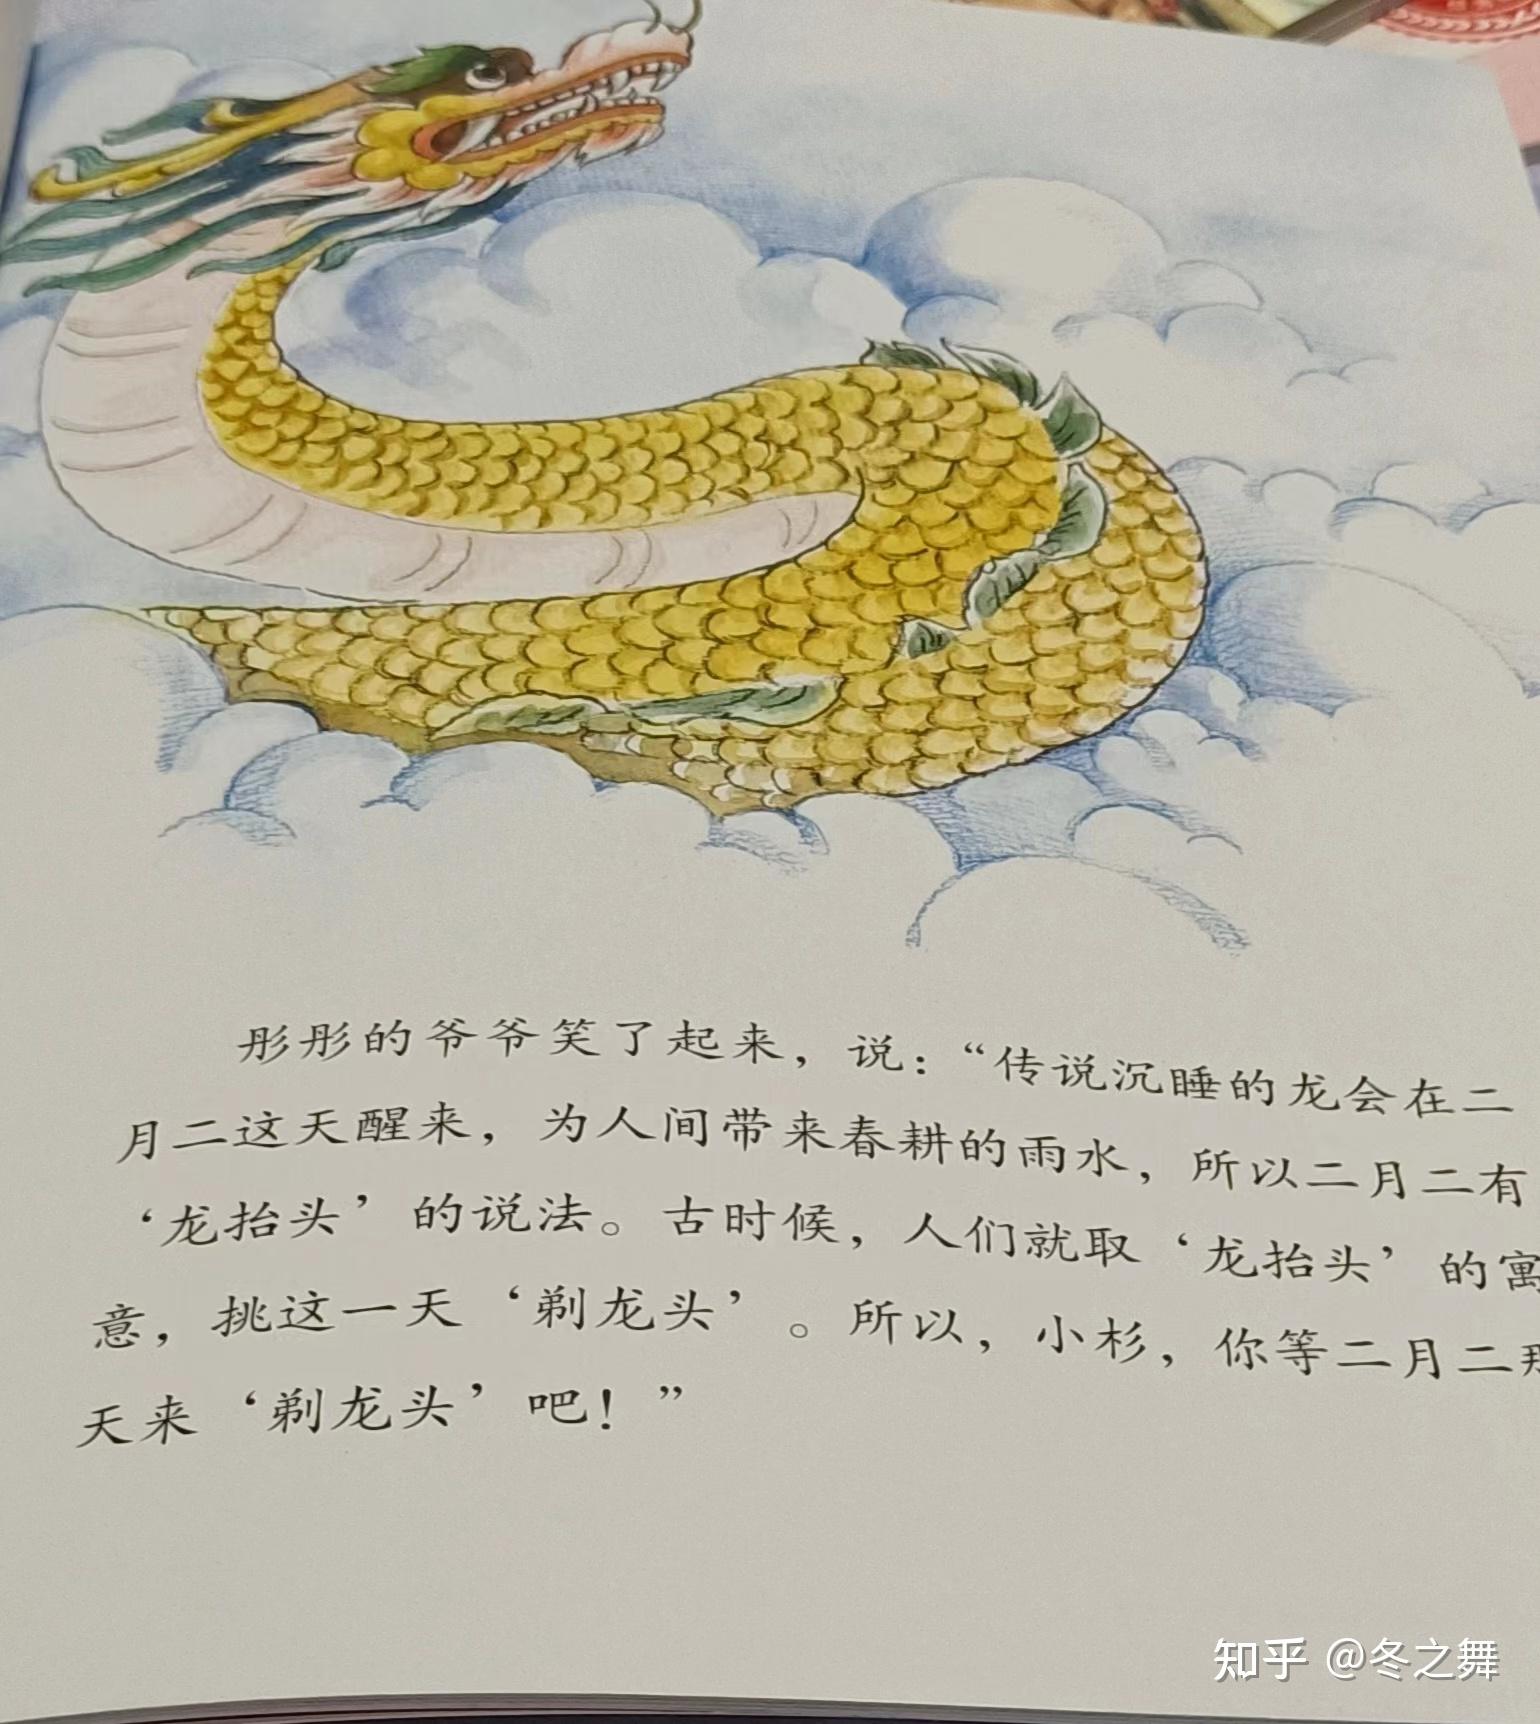 彤彤的爷爷笑了起来，说：“传说沉睡的龙会在二
月二这天醒来，为人间带来春耕的雨水，所以二月二有
‘龙抬头’的说法。古时候，人们就取‘龙抬头’的寓
意，挑这一天‘剃龙头’。所以，小杉，你等二月二那
天来‘剃龙头’吧！”
知乎 @冬之舞